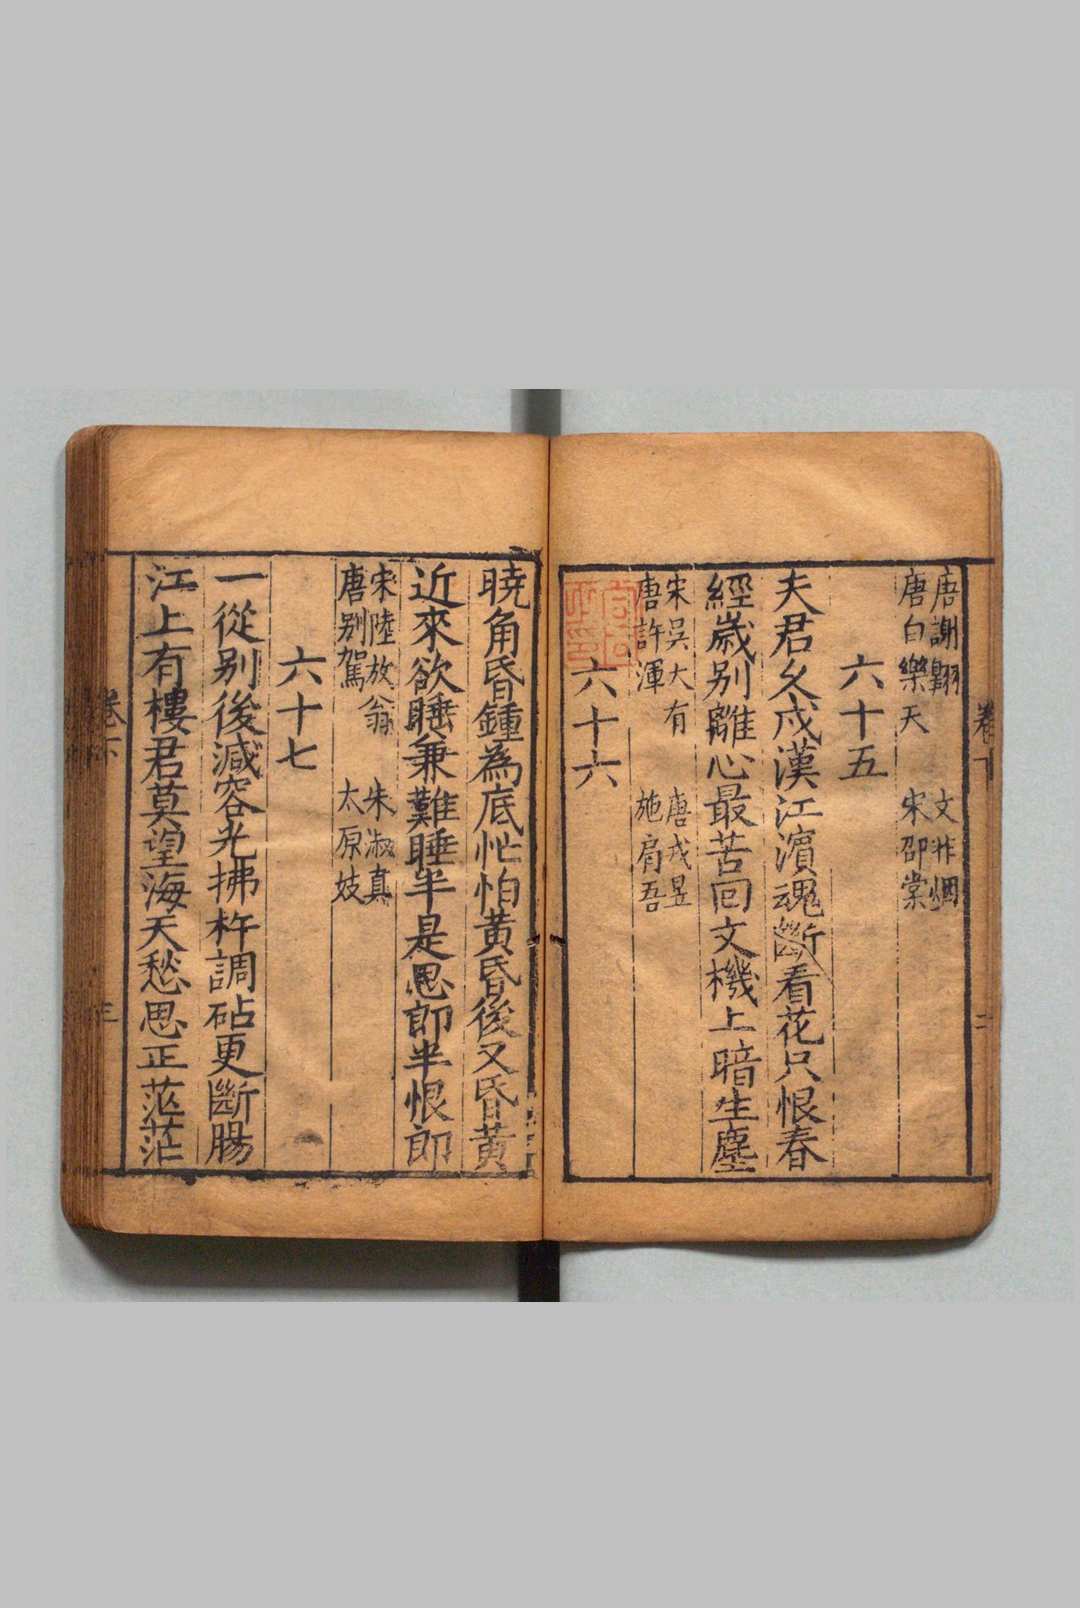 唐謝翺　文非烟
唐白樂天　宋邵棠
六十五
夫君久戍漢江濵魂斷看花只恨春
經歲别離心最苦回文機上暗生塵
宋吳大有　唐戎昱
唐許渾　施肩吾
六十六
曉角昏鍾為底忙怕黄昏後又昏黄
近來欲睡兼難睡半是思郎半恨郎
宋陸放翁　朱淑真
唐别駕　太原妓
六十七
一從别後減容光拂杵調砧更斷腸
江上有樓君莫望海天愁思正茫茫
卷下
三